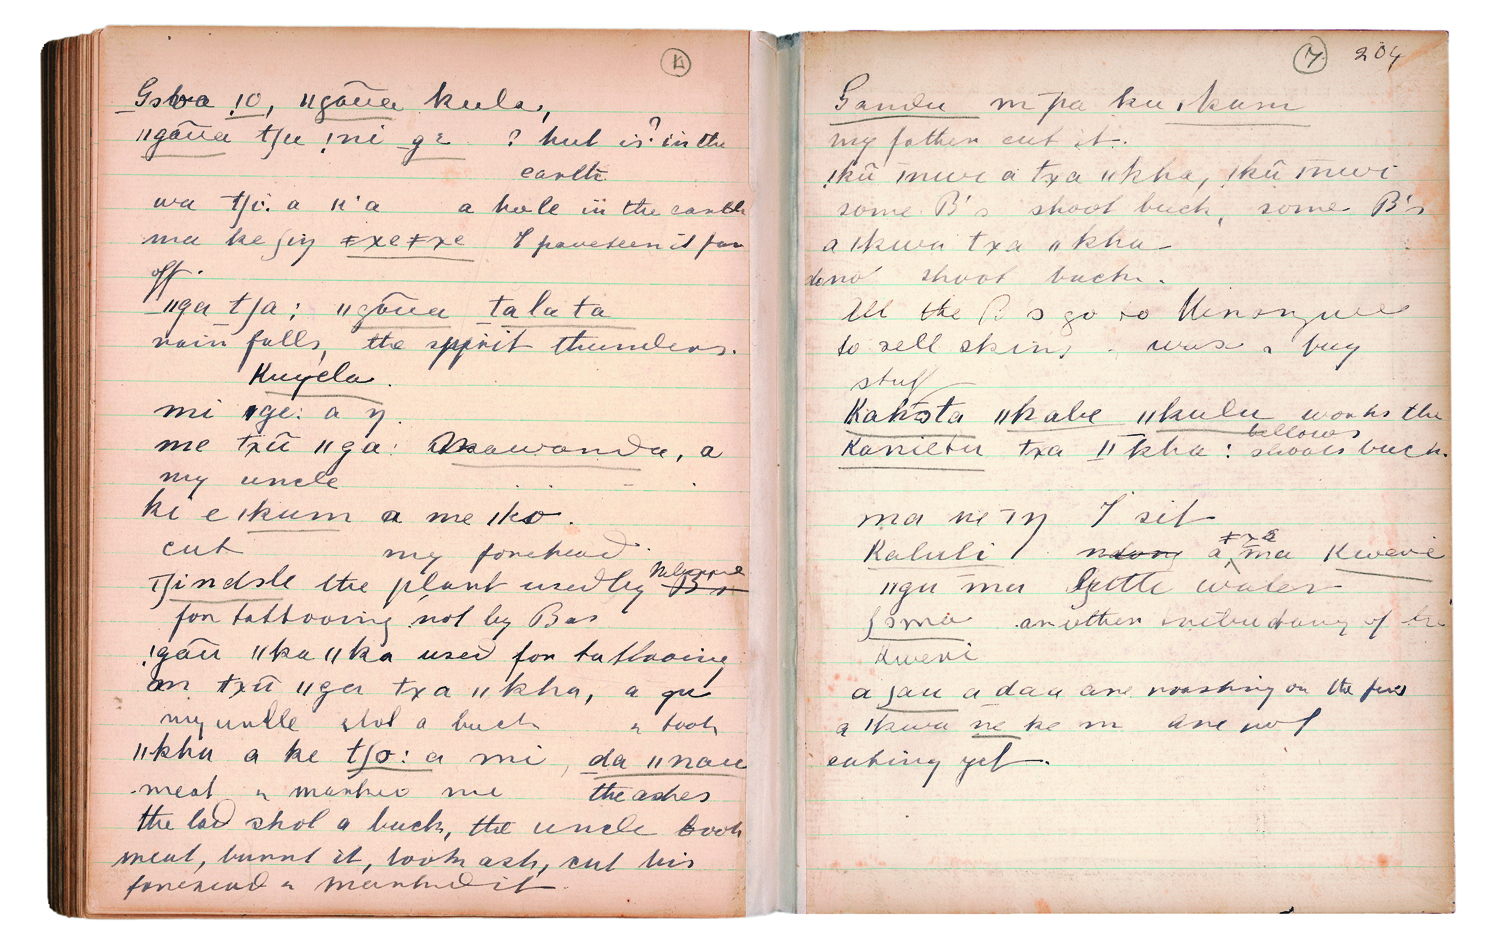 4
Gsba !o, ǁgãũa kula,
ǁgãũa tʃu !ni gɛ ? hut is? in the
earth.
wa tʃi: a ǁ'a a hole in the earth
ma ke ʃiŋ ǂxeǂxe I have seen it far
off.
ǁga tʃa: ǁgãũa ta la ta
rain falls, the spirit thunders.
Kuyela.
mi ge: a ŋ
me txũ ǁga: Okawanda, a
my uncle
ki e ǀkum a me ǀkɔ.
cut my forehead.
Tʃindɛle the plant used by
for tattooing not by Bas
!gãũ ǁkaǁka used for tattooing
m txũ ǁga txa ǁkha, a gu
my uncle shot a buck & took
ǁkha a ke tʃo: a mi, da ǁnau
meat & marked me the ashes
the lad shot a buck, the uncle took
meat, burnt it, took ash, cut his
forehead & marked it.
7 204
Sandu m̄ pa ku ǀkum
my father cut it.
!kũ īnwi a txa ǁkha, !kũ īnwi
some B's shoot buck, some B's
a ǀkwa txa ǁkha
do not shoot buck.
All the B s go to
to sell skins. wax & buy
stuff
Kahɔta ǁkabe ǁkulu works the
bellows
Kanietu txa ǁkha: shoots buck.
ma ne īŋ I sit
ǂxɛ
Kaluli ndong a ma Kweve
ǁgu ma little water
ʃɔma another tributary of the
Kweve
a ʃau a daa are roasting on the fire
a ǀkwa ne ke m are not
eating yet.